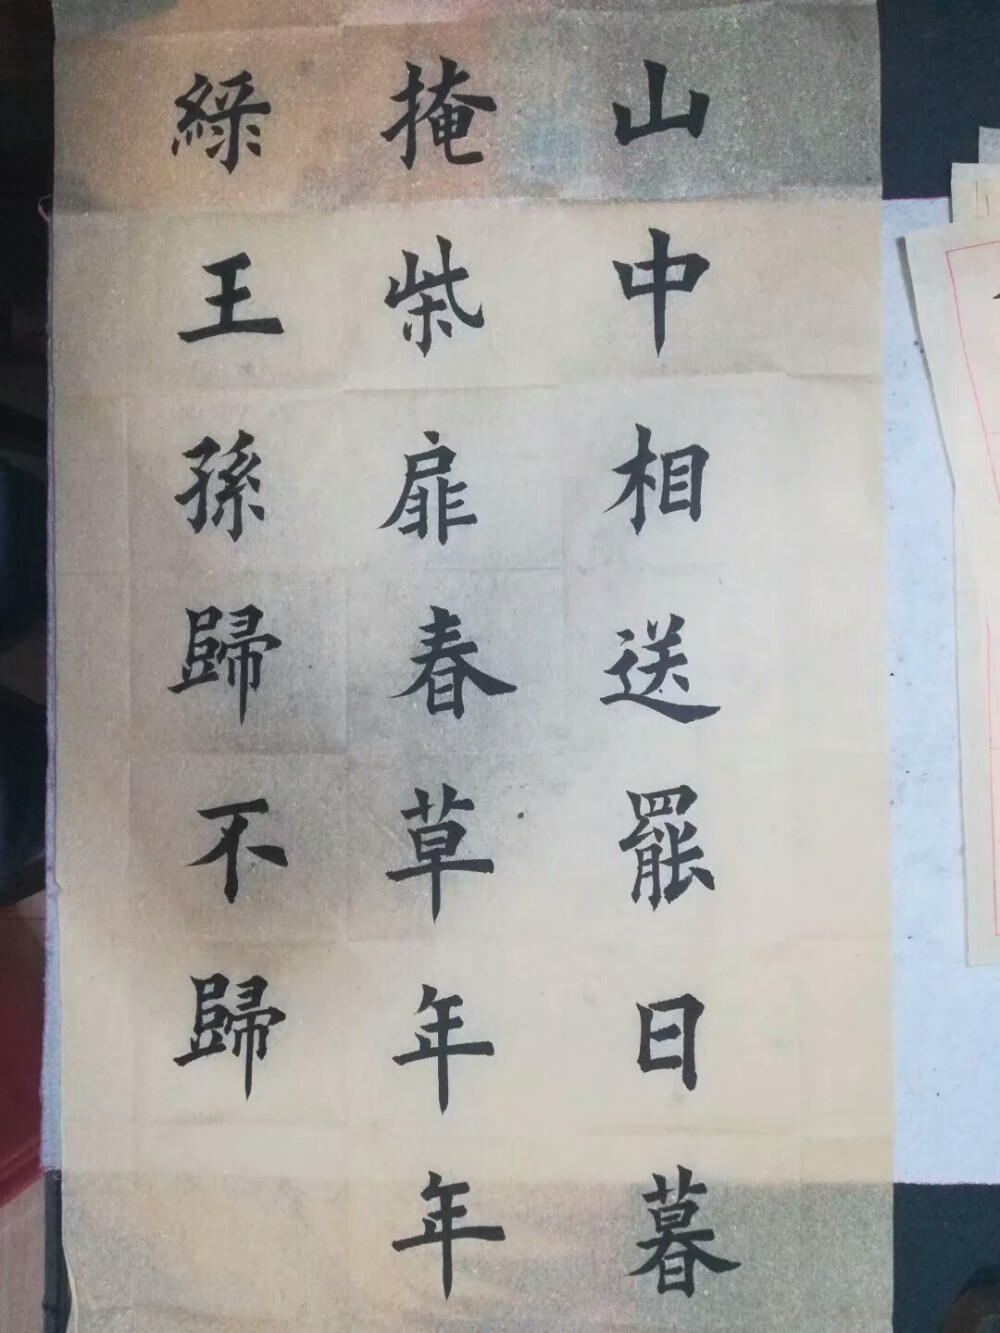 山中相送罷日暮
掩柴扉春草年年
綠王孫歸不歸